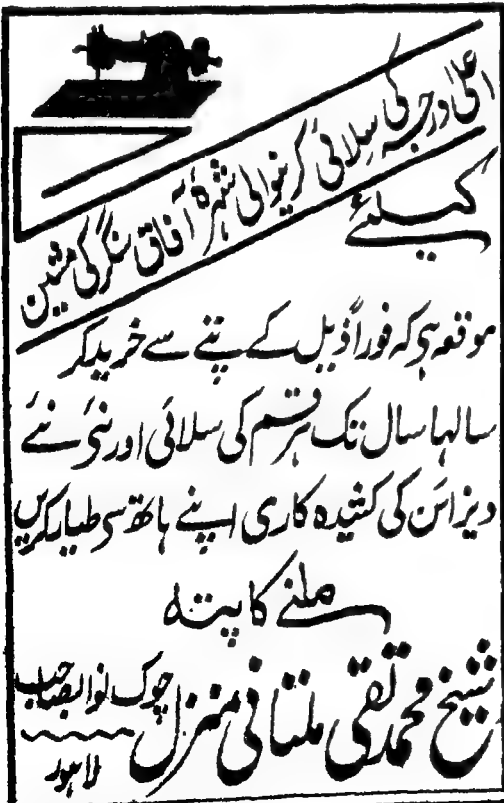 اعلیٰ درجہ کی سلائی کرنیوالی شہرۂ آفاق سنگر کی مشین
کیلئے
موقعہ ہی کہ فوراً ذیل کے پتے سے خرید کر
سالہا سال تک ہر قسم کی سلائی اور نئی نئے
دیزائن کی کشیدہ کاری اپنے ہاتھ سی طیار کریں
ملنے کا پتہ
شیخ محمد تقی ملتانی منزل چوک نواب صاحب
لاہور